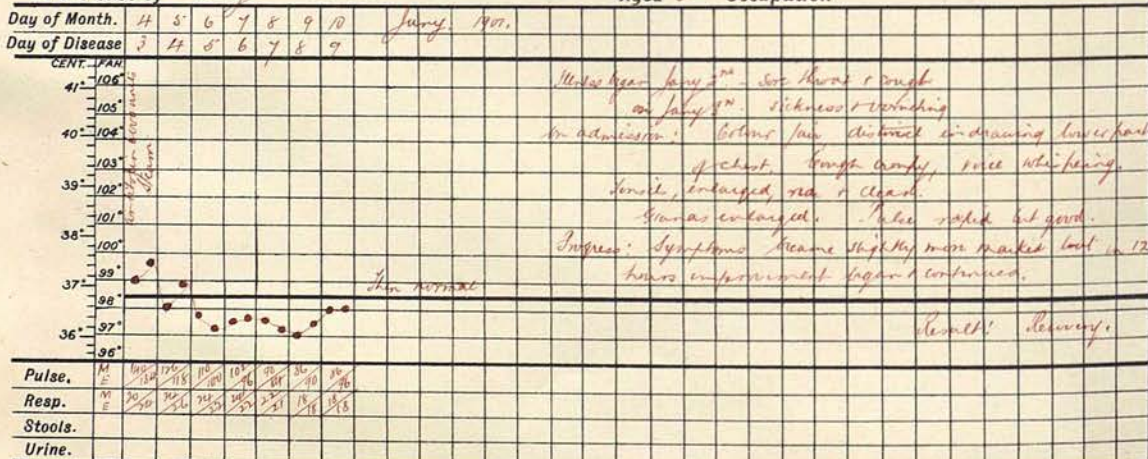 Day of Month. 4 5 6 7 8 9 10 Jany. 1901.
Day of Disease 3 4 5 6 7 8 9
CENT. FAH.
41° 106°
105°
40° 104°
103°
39° 102°
101°
38° 100°
99°
37° 98°
36° 97°
96°
Steam
Illness began Jany 2nd - Sore throat & cough
on Jany 3rd - sickness & vomiting
On admission: Colour fair distinct indrawing lower part
of chest, Cough croupy, voice whispering.
Tonsils, enlarged, red & clean.
Glands enlarged. Pulse rapid but good.
Progress: Symptoms became slightly more marked but in 12
hours improvement began & continued.
Then normal
Result: Recovery.
Pulse. M E 140 126 118 110 100 102 96 90 86 90 86 96
Resp. M E 30 24 26 24 22 22 18 18 18 18
Stools.
Urine.